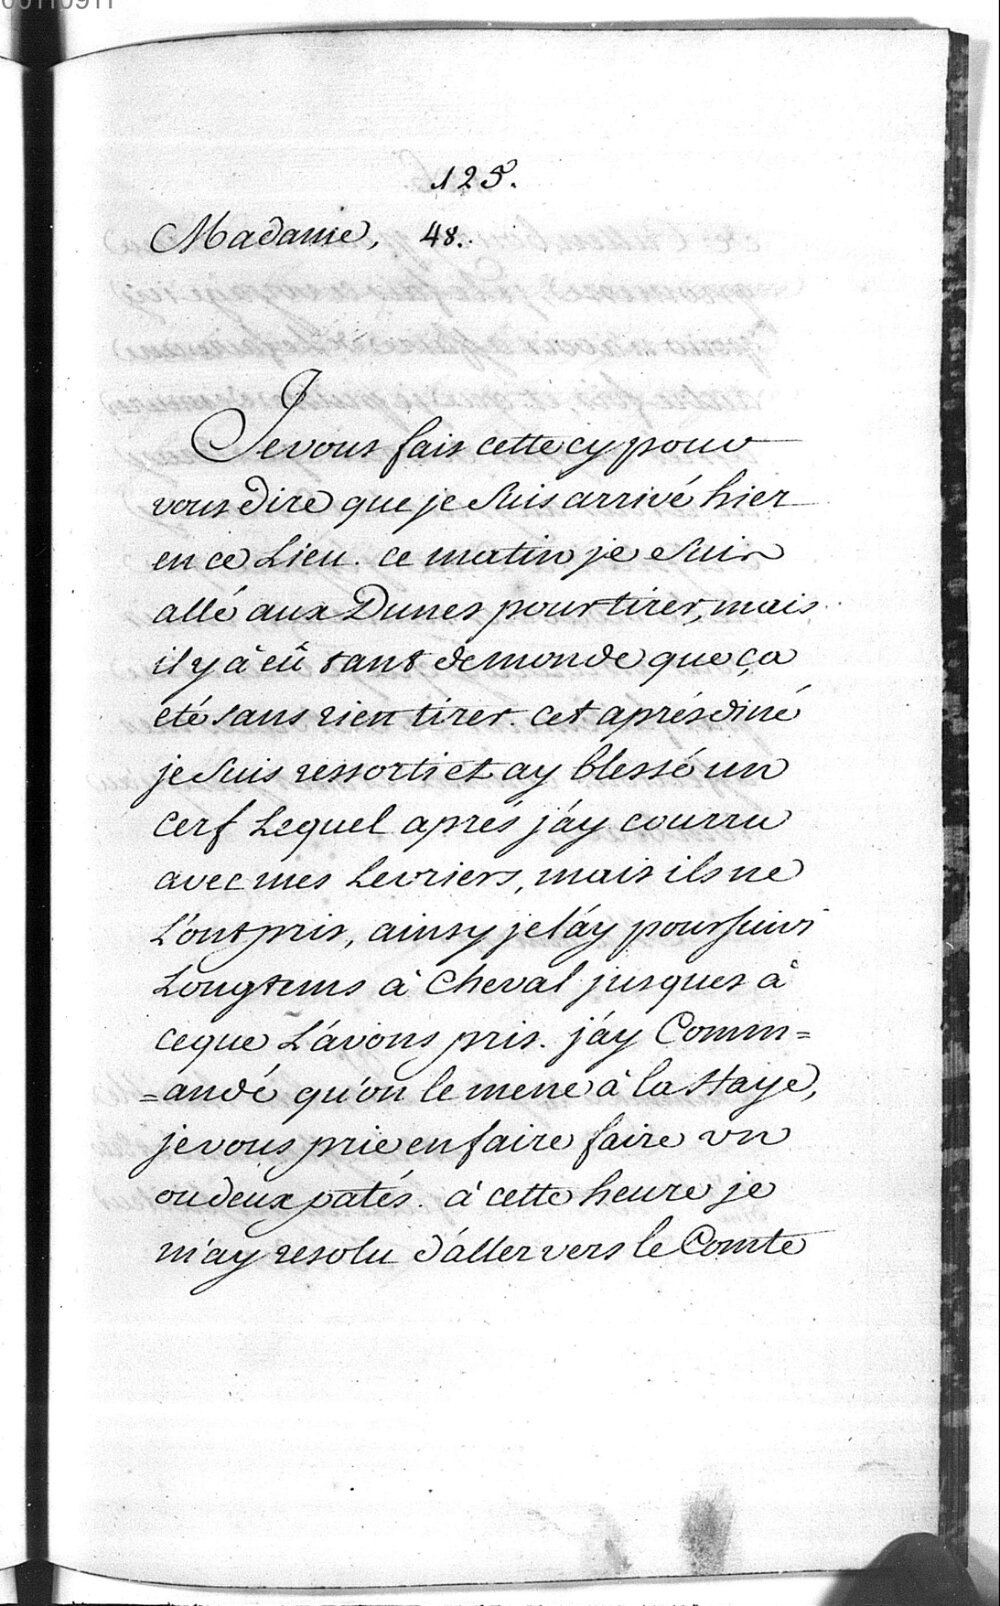 00110911
125.
Madame, 48.
Je vous fais cette cy pour
vous dire que je suis arrivé hier
en ce Lieu. ce matin je suis
allé aux Dunes pour tirer, mais
il y à eû tant de monde que ça
eté sans rien tirer. cet aprés diné
je suis ressorti et ay blessé un
cerf Lequel aprés j'áy courru
avec mes Levriers, mais ils ne
L'ont pris, ainsy je l'áy poursuivi
Longtems à Cheval jusques à
ceque L'ávons pris. j'áy Comm=
=andé qu'on le mene à la Haye,
je vous prie en faire faire un
ou deux patés. à cette heure je
m'ay resolu d'áller vers le Comte